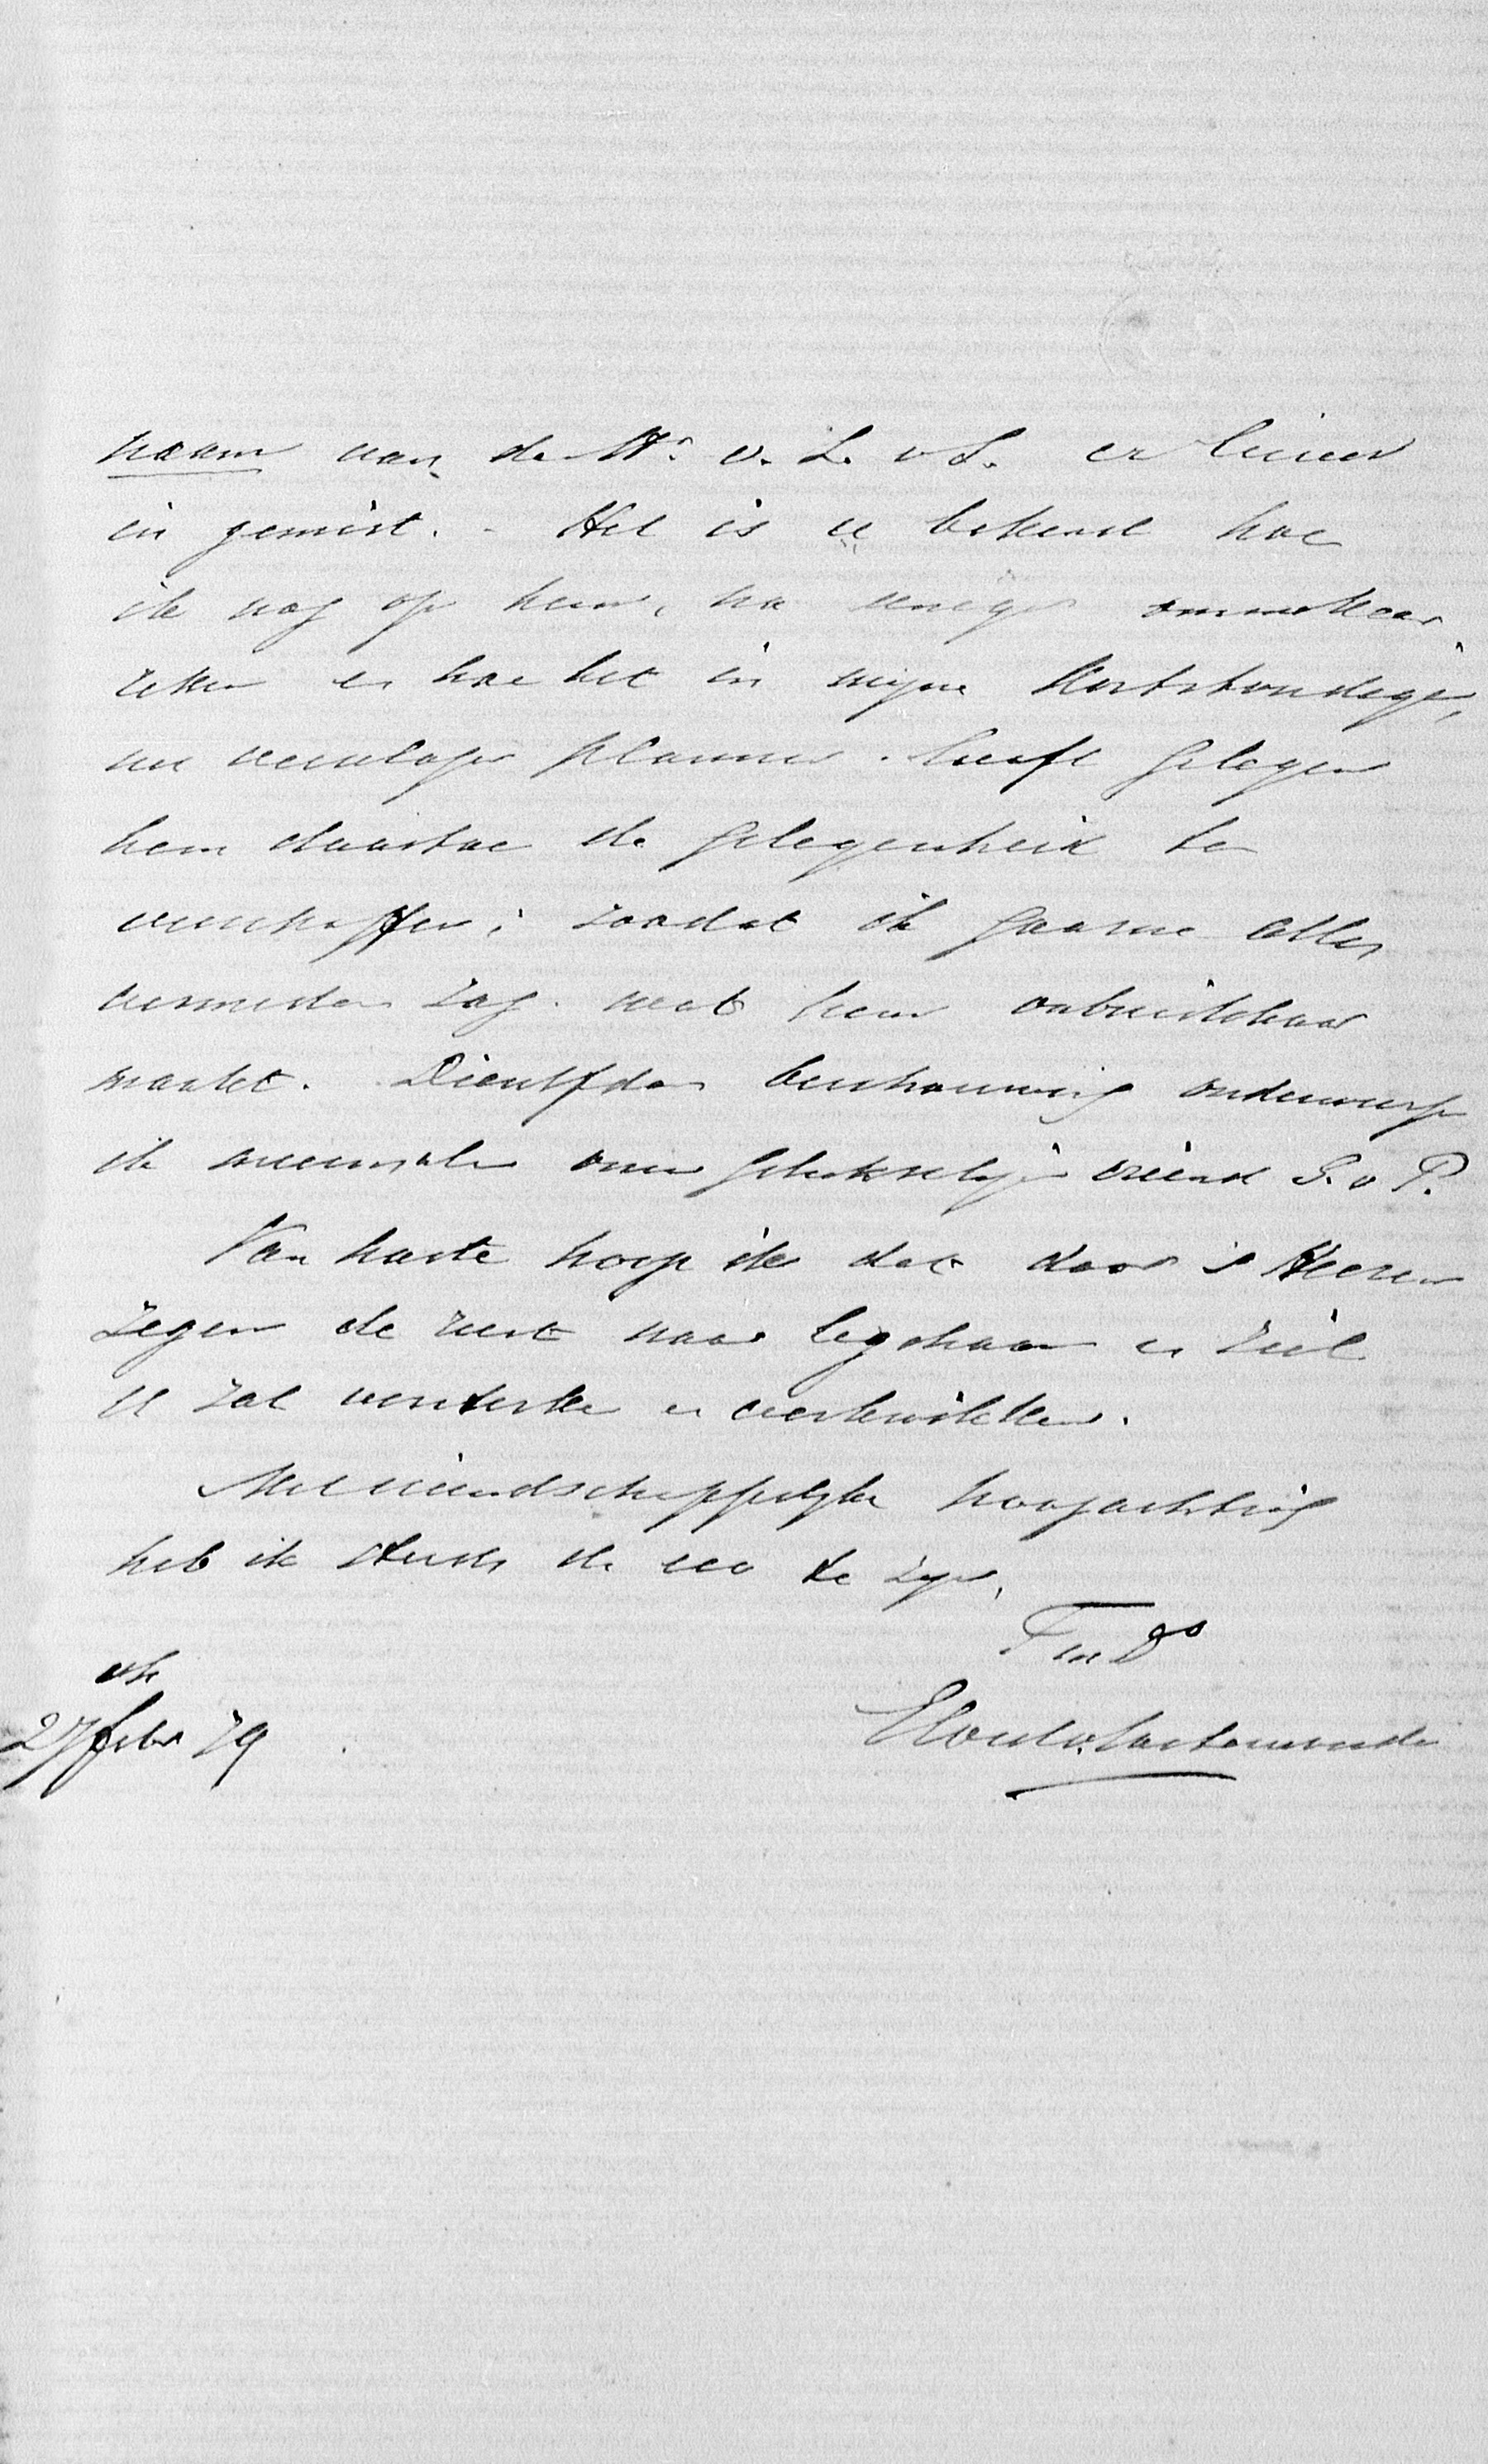 naam van de Hr. v. L. v S. er buiten
in gemist. - Het is U bekend hoe
ik nog op hem, na enige ommekeer,
reken en hoe het in mijne kortstondige,
nu vervlogen plannen heeft gelegen
hem daartoe de gelegenheid te
verschaffen; zoodat ik gaarne alles
vermeden zag wat hem onbruikbaar
maakt. Dienzelfden beschouwing onderwerp
ik meermalen onze vriend S. v P.
Van harte hoop ik dat door 's Heeren
zegen de rust naar ligchaam en ziel
U zal versterken en verkwikken.
Met vriendschappelijke hoogachting
heb ik steeds de eer te zijn,
TuwD
Elout v. Soeterwoude
vh
27 febr 79